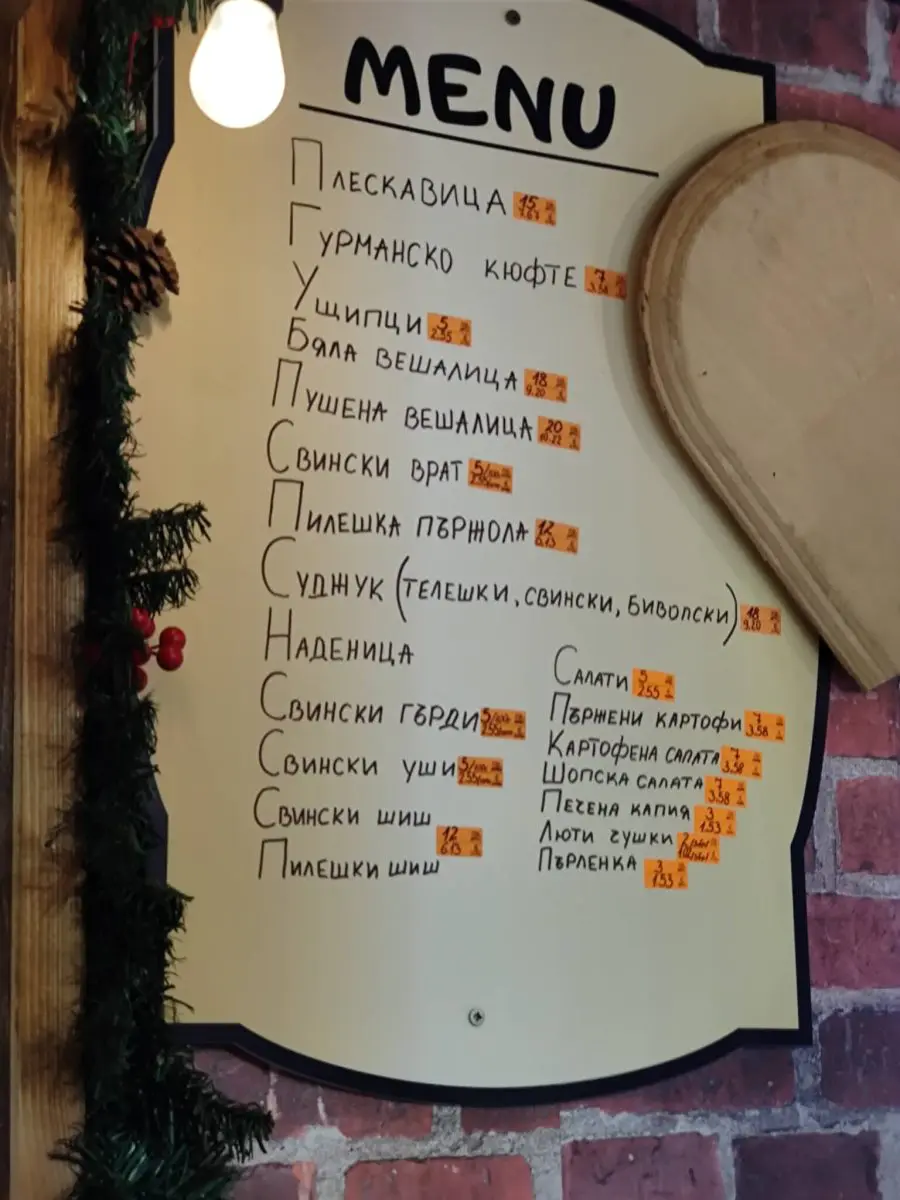 MENU
ПЛЕСКАВИЦА 15 7.67
ГУРМАНСКО КЮФТЕ 7 3.58
УЩИПЦИ 5 2.55
БЯЛА ВЕШАЛИЦА 18 9.20
ПУШЕНА ВЕШАЛИЦА 20 10.22
СВИНСКИ ВРАТ 5/
ПИЛЕШКА ПЪРЖОЛА 12 6.13
СУДЖУК (ТЕЛЕШКИ, СВИНСКИ, БИВОЛСКИ) 18 9.20
НАДЕНИЦА
СВИНСКИ ГЪРДИ 5/
СВИНСКИ УШИ 5/
СВИНСКИ ШИШ
12 6.13
ПИЛЕШКИ ШИШ
САЛАТИ 5 2.55
ПЪРЖЕНИ КАРТОФИ 7 3.58
КАРТОФЕНА САЛАТА 7 3.58
ШОПСКА САЛАТА 7 3.58
ПЕЧЕНА КАПИЯ 3 1.53
ЛЮТИ ЧУШКИ
ПЪРЛЕНКА 3 1.53